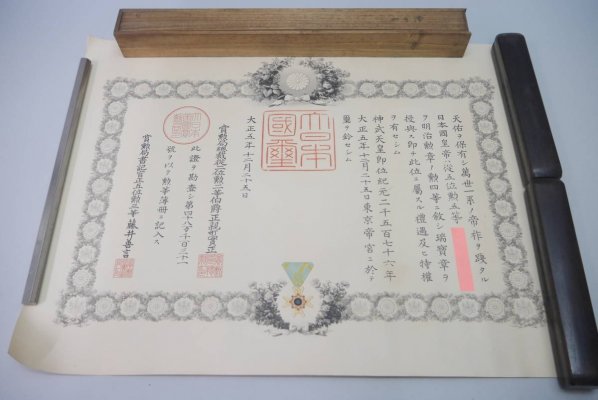 天佑ヲ保有シ萬世一系ノ帝祚ヲ踐タル
日本國皇帝ハ從五位勳五等
ヲ明治勳章ノ勳四等ニ敍シ瑞寶章ヲ
授與ス即チ此位ニ屬スル禮遇及ヒ特權
ヲ有セシム
神武天皇即位紀元二千五百七十六年
大正五年十二月二十五日東京帝宮ニ於テ
璽ヲ鈐セシム
大日本國璽
大正五年十二月二十五日
賞勳局總裁從二位勳一等伯爵正親町實正
此證ヲ勘査シ第四十八万千百三十一
號ヲ以テ勳等簿冊ニ記入ス
賞勳局書記官正五位勳三等藤井善言